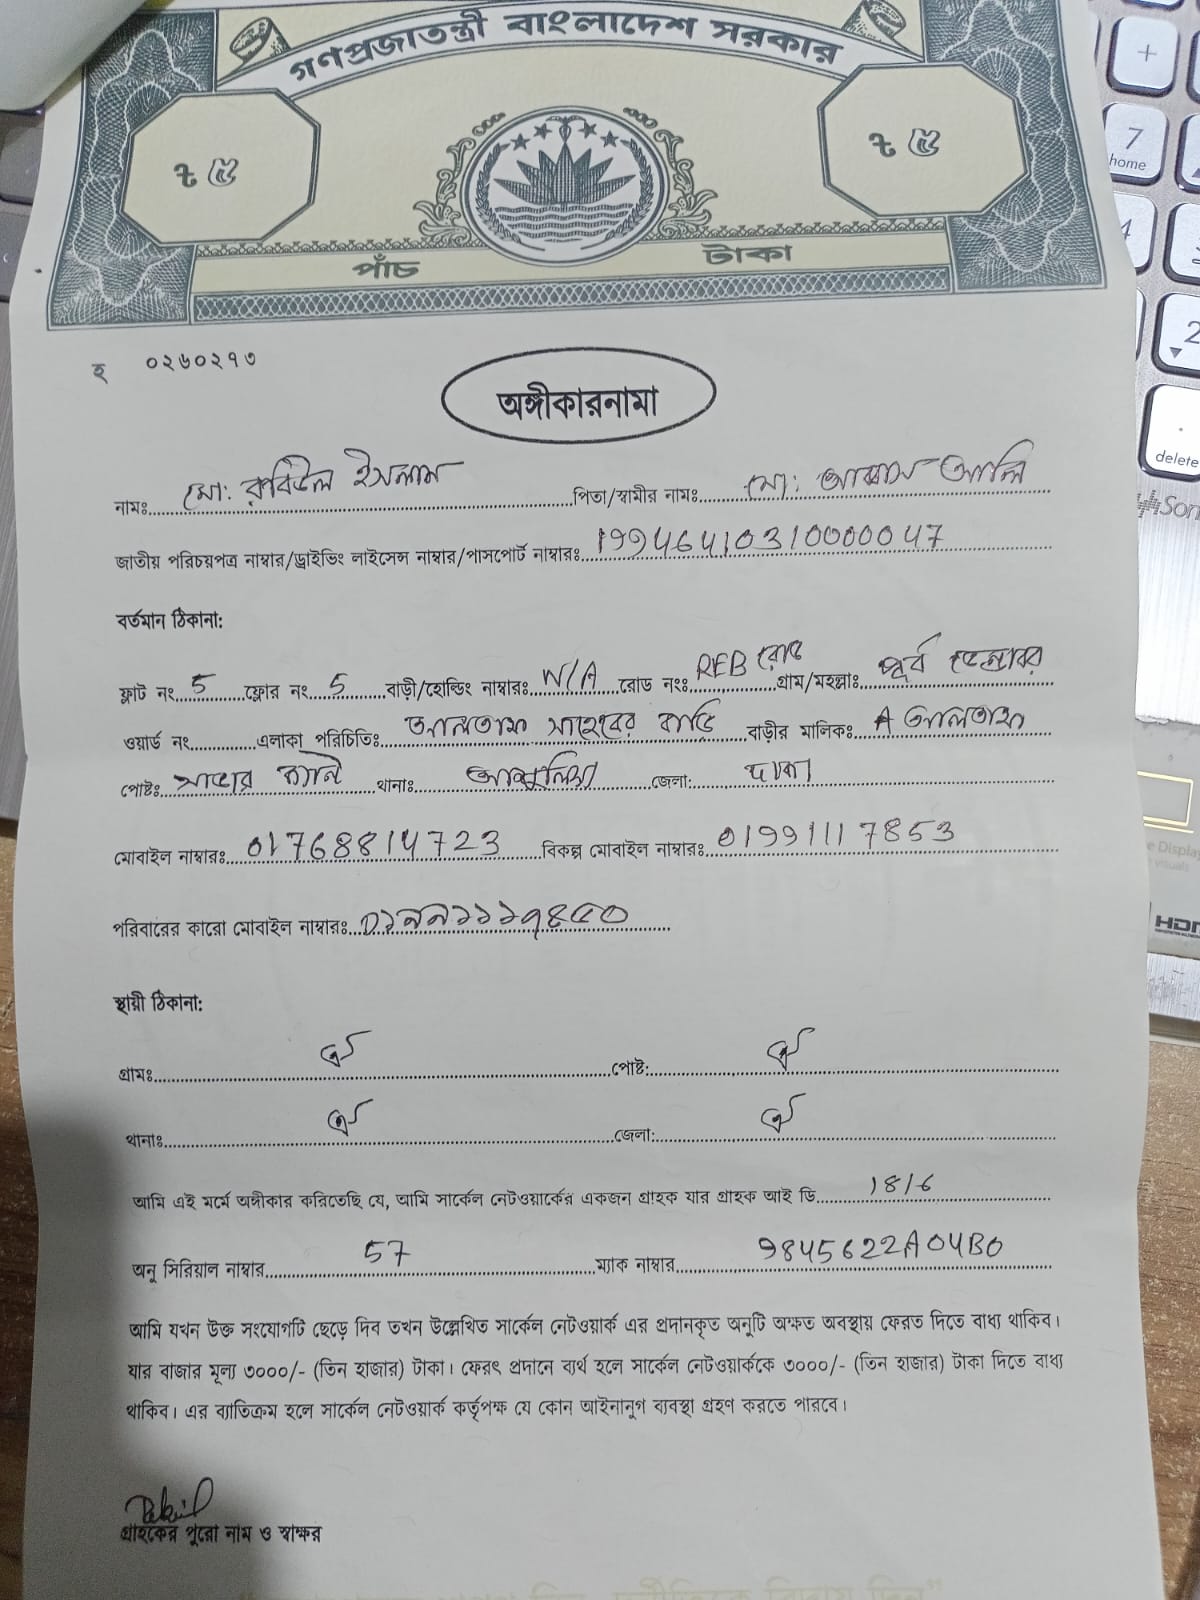 গণপ্রজাতন্ত্রী বাংলাদেশ সরকার
৳ ৫ ৳ ৫
পাঁচ টাকা
হ ০২৬০২৭৩
অঙ্গীকারনামা
নামঃ মো: রবিউল ইসলাম পিতা/স্বামীর নামঃ মো: আলি
জাতীয় পরিচয়পত্র নাম্বার/ড্রাইভিং লাইসেন্স নাম্বার/পাসপোর্ট নাম্বারঃ 19946410310000047
বর্তমান ঠিকানা:
ফ্লাট নং 5 ফ্লোর নং 5 বাড়ী/হোল্ডিং নাম্বারঃ N/A রোড নংঃ REB রোড গ্রাম/মহল্লাঃ পূর্ব
ওয়ার্ড নং এলাকা পরিচিতিঃ আলতাফ সাহেবের বাড়ি বাড়ীর মালিকঃ A আলতাফ
পোষ্টঃ সাভার ক্যান্ট থানাঃ আশুলিয়া জেলা: ঢাকা
মোবাইল নাম্বারঃ 01768814723 বিকল্প মোবাইল নাম্বারঃ 01991117853
পরিবারের কারো মোবাইল নাম্বারঃ
স্থায়ী ঠিকানা:
গ্রামঃ ঐ পোষ্ট: ঐ
থানাঃ ঐ জেলা: ঐ
আমি এই মর্মে অঙ্গীকার করিতেছি যে, আমি সার্কেল নেটওয়ার্কের একজন গ্রাহক যার গ্রাহক আই ডি 1816
অনু সিরিয়াল নাম্বার 57 ম্যাক নাম্বার 9845622A04B0
আমি যখন উক্ত সংযোগটি ছেড়ে দিব তখন উল্লেখিত সার্কেল নেটওয়ার্ক এর প্রদানকৃত অনুটি অক্ষত অবস্থায় ফেরত দিতে বাধ্য থাকিব।
যার বাজার মূল্য ৩০০০/- (তিন হাজার) টাকা। ফেরৎ প্রদানে ব্যর্থ হলে সার্কেল নেটওয়ার্ককে ৩০০০/- (তিন হাজার) টাকা দিতে বাধ্য
থাকিব। এর ব্যাতিক্রম হলে সার্কেল নেটওয়ার্ক কর্তৃপক্ষ যে কোন আইনানুগ ব্যবস্থা গ্রহণ করতে পারবে।
গ্রাহকের পুরো নাম ও স্বাক্ষর
+
7
home
4
2
delete
HDMI